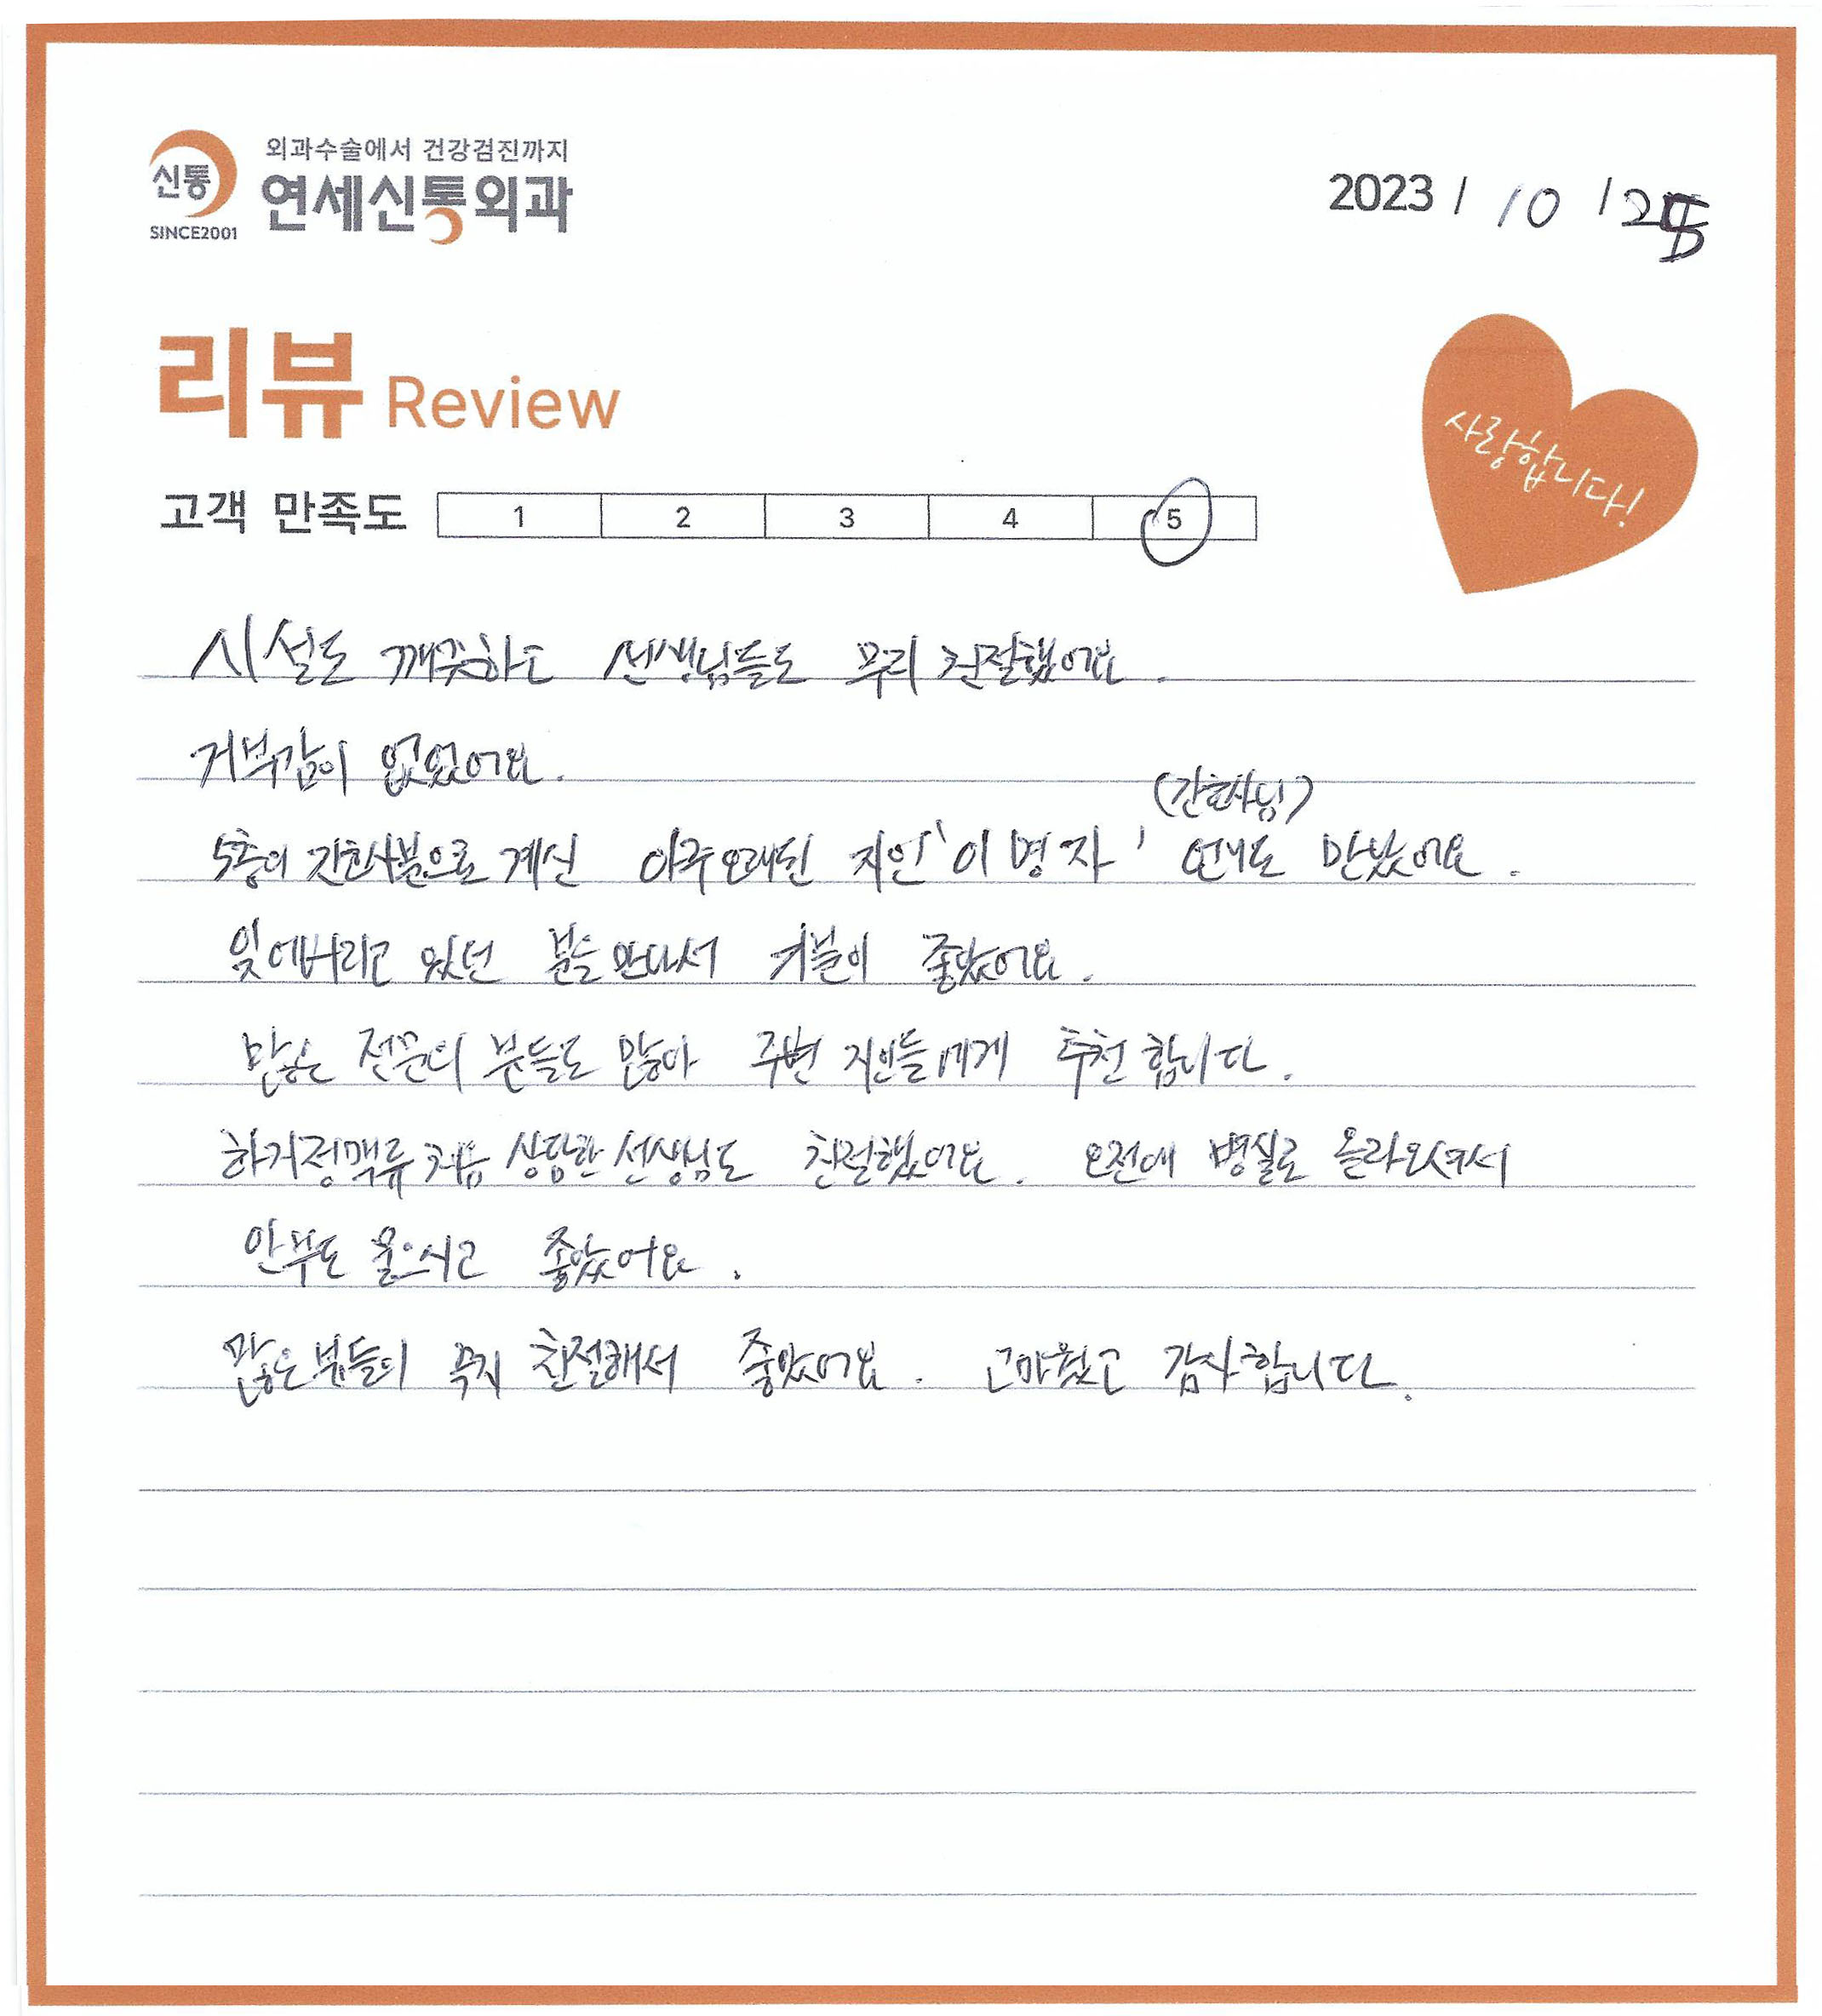 외과수술에서 건강검진까지
신통
연세신통외과
SINCE2001
2023 / 10 / 25
리뷰 Review
사랑합니다!
고객 만족도 1 2 3 4 5
시설도 깨끗하고 선생님들도 무지 친절했어요.
거부감이 없었어요.
(간호사님)
5층에 간호사분으로 계신 아주 오래된 지인 '이명자' 언니도 만났어요.
잊어버리고 있던 분을 만나서 기분이 좋았어요.
많은 전문의 분들도 많아 주변 지인들에게 추천합니다.
하지정맥류 처음 상담한 선생님도 친절했어요. 오전에 병실로 올라오셔서
안부도 물으시고 좋았어요.
많은분들이 무지 친절해서 좋았어요. 고마웠고 감사합니다.